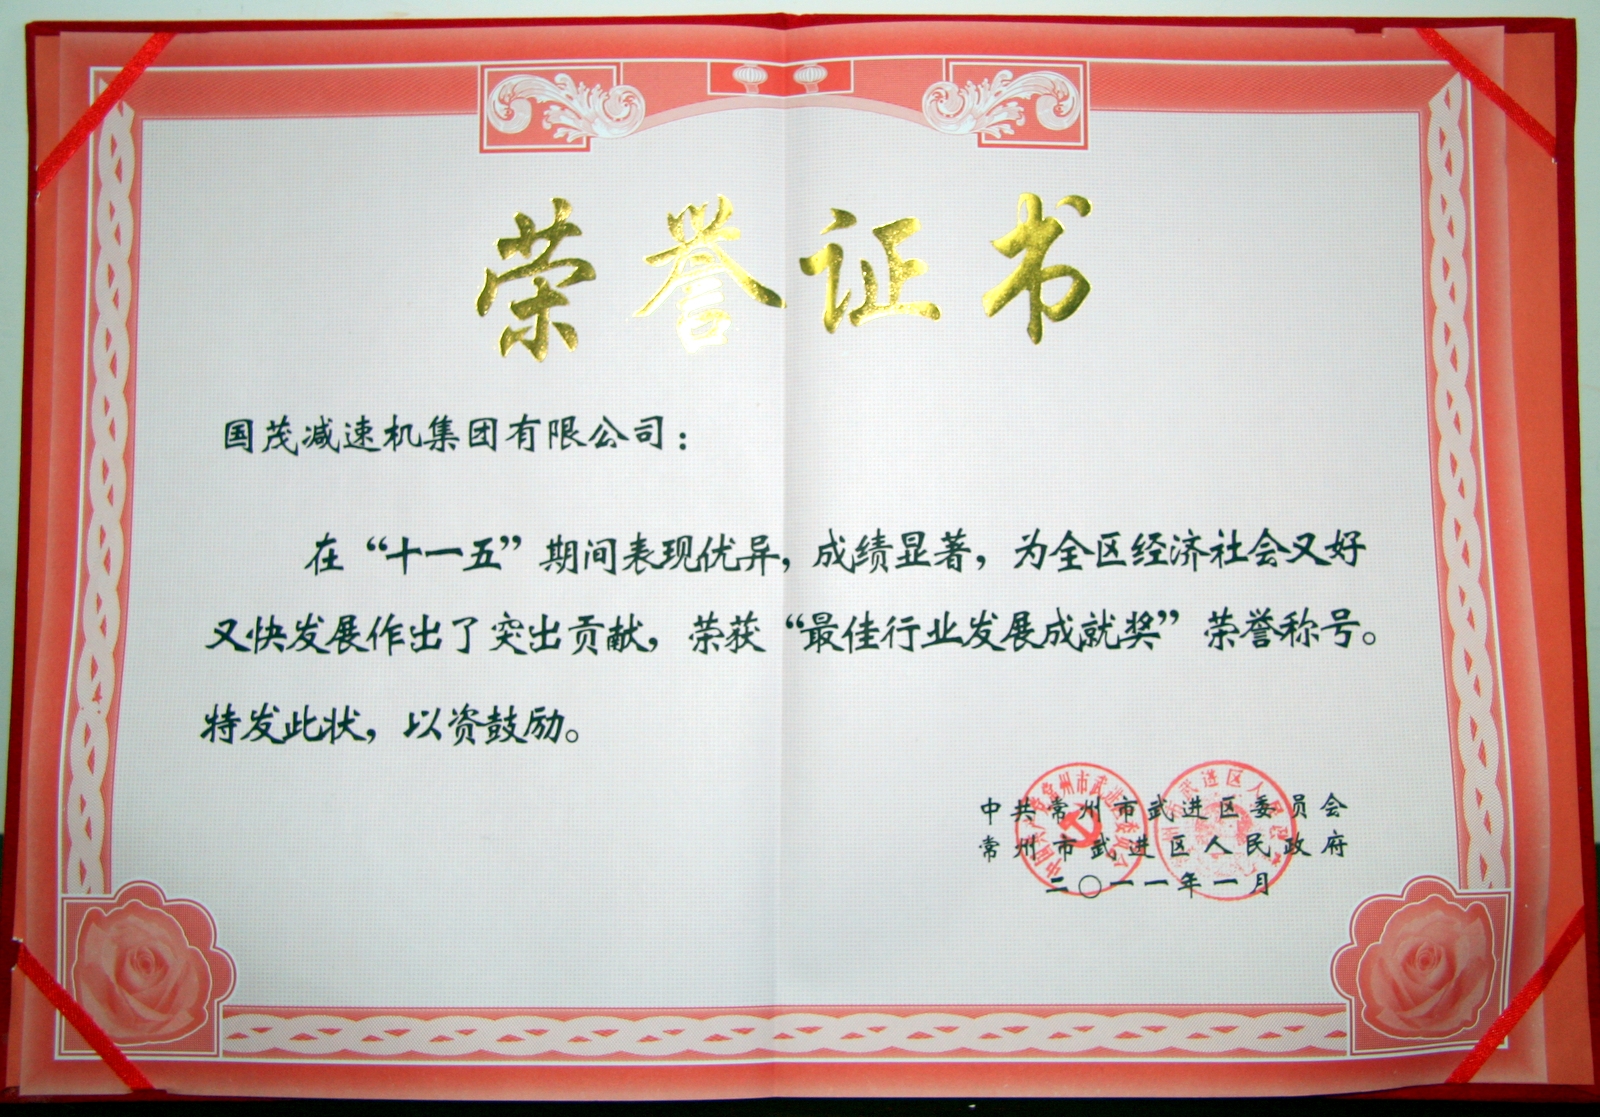 荣誉证书
国茂减速机集团有限公司：
在“十一五”期间表现优异，成绩显著，为全区经济社会又好
又快发展作出了突出贡献，荣获“最佳行业发展成就奖”荣誉称号。
特发此状，以资鼓励。
中共常州市武进区委员会
常州市武进区人民政府
二〇一一年一月